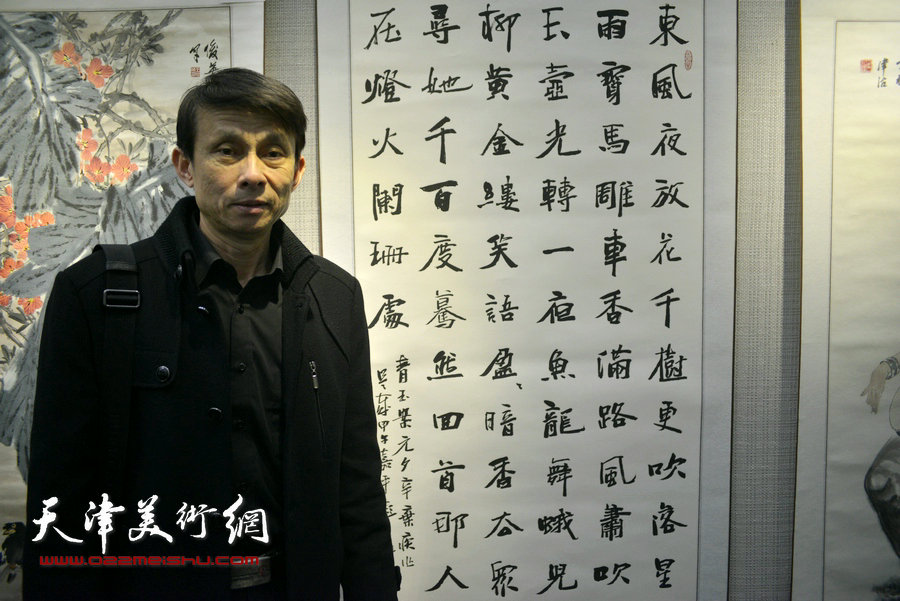 東風夜放花千樹更吹落星
雨寶馬雕車香滿路風蕭吹
玉壺光轉一夜魚龍舞蛾兒
柳黃金縷笑語盈〻暗香去眾
尋她千百度驀然回首那人
在燈火闌珊處
青玉案元夕辛棄疾作
甲午嘉平
津沽
天津美術網
www.022meishu.com